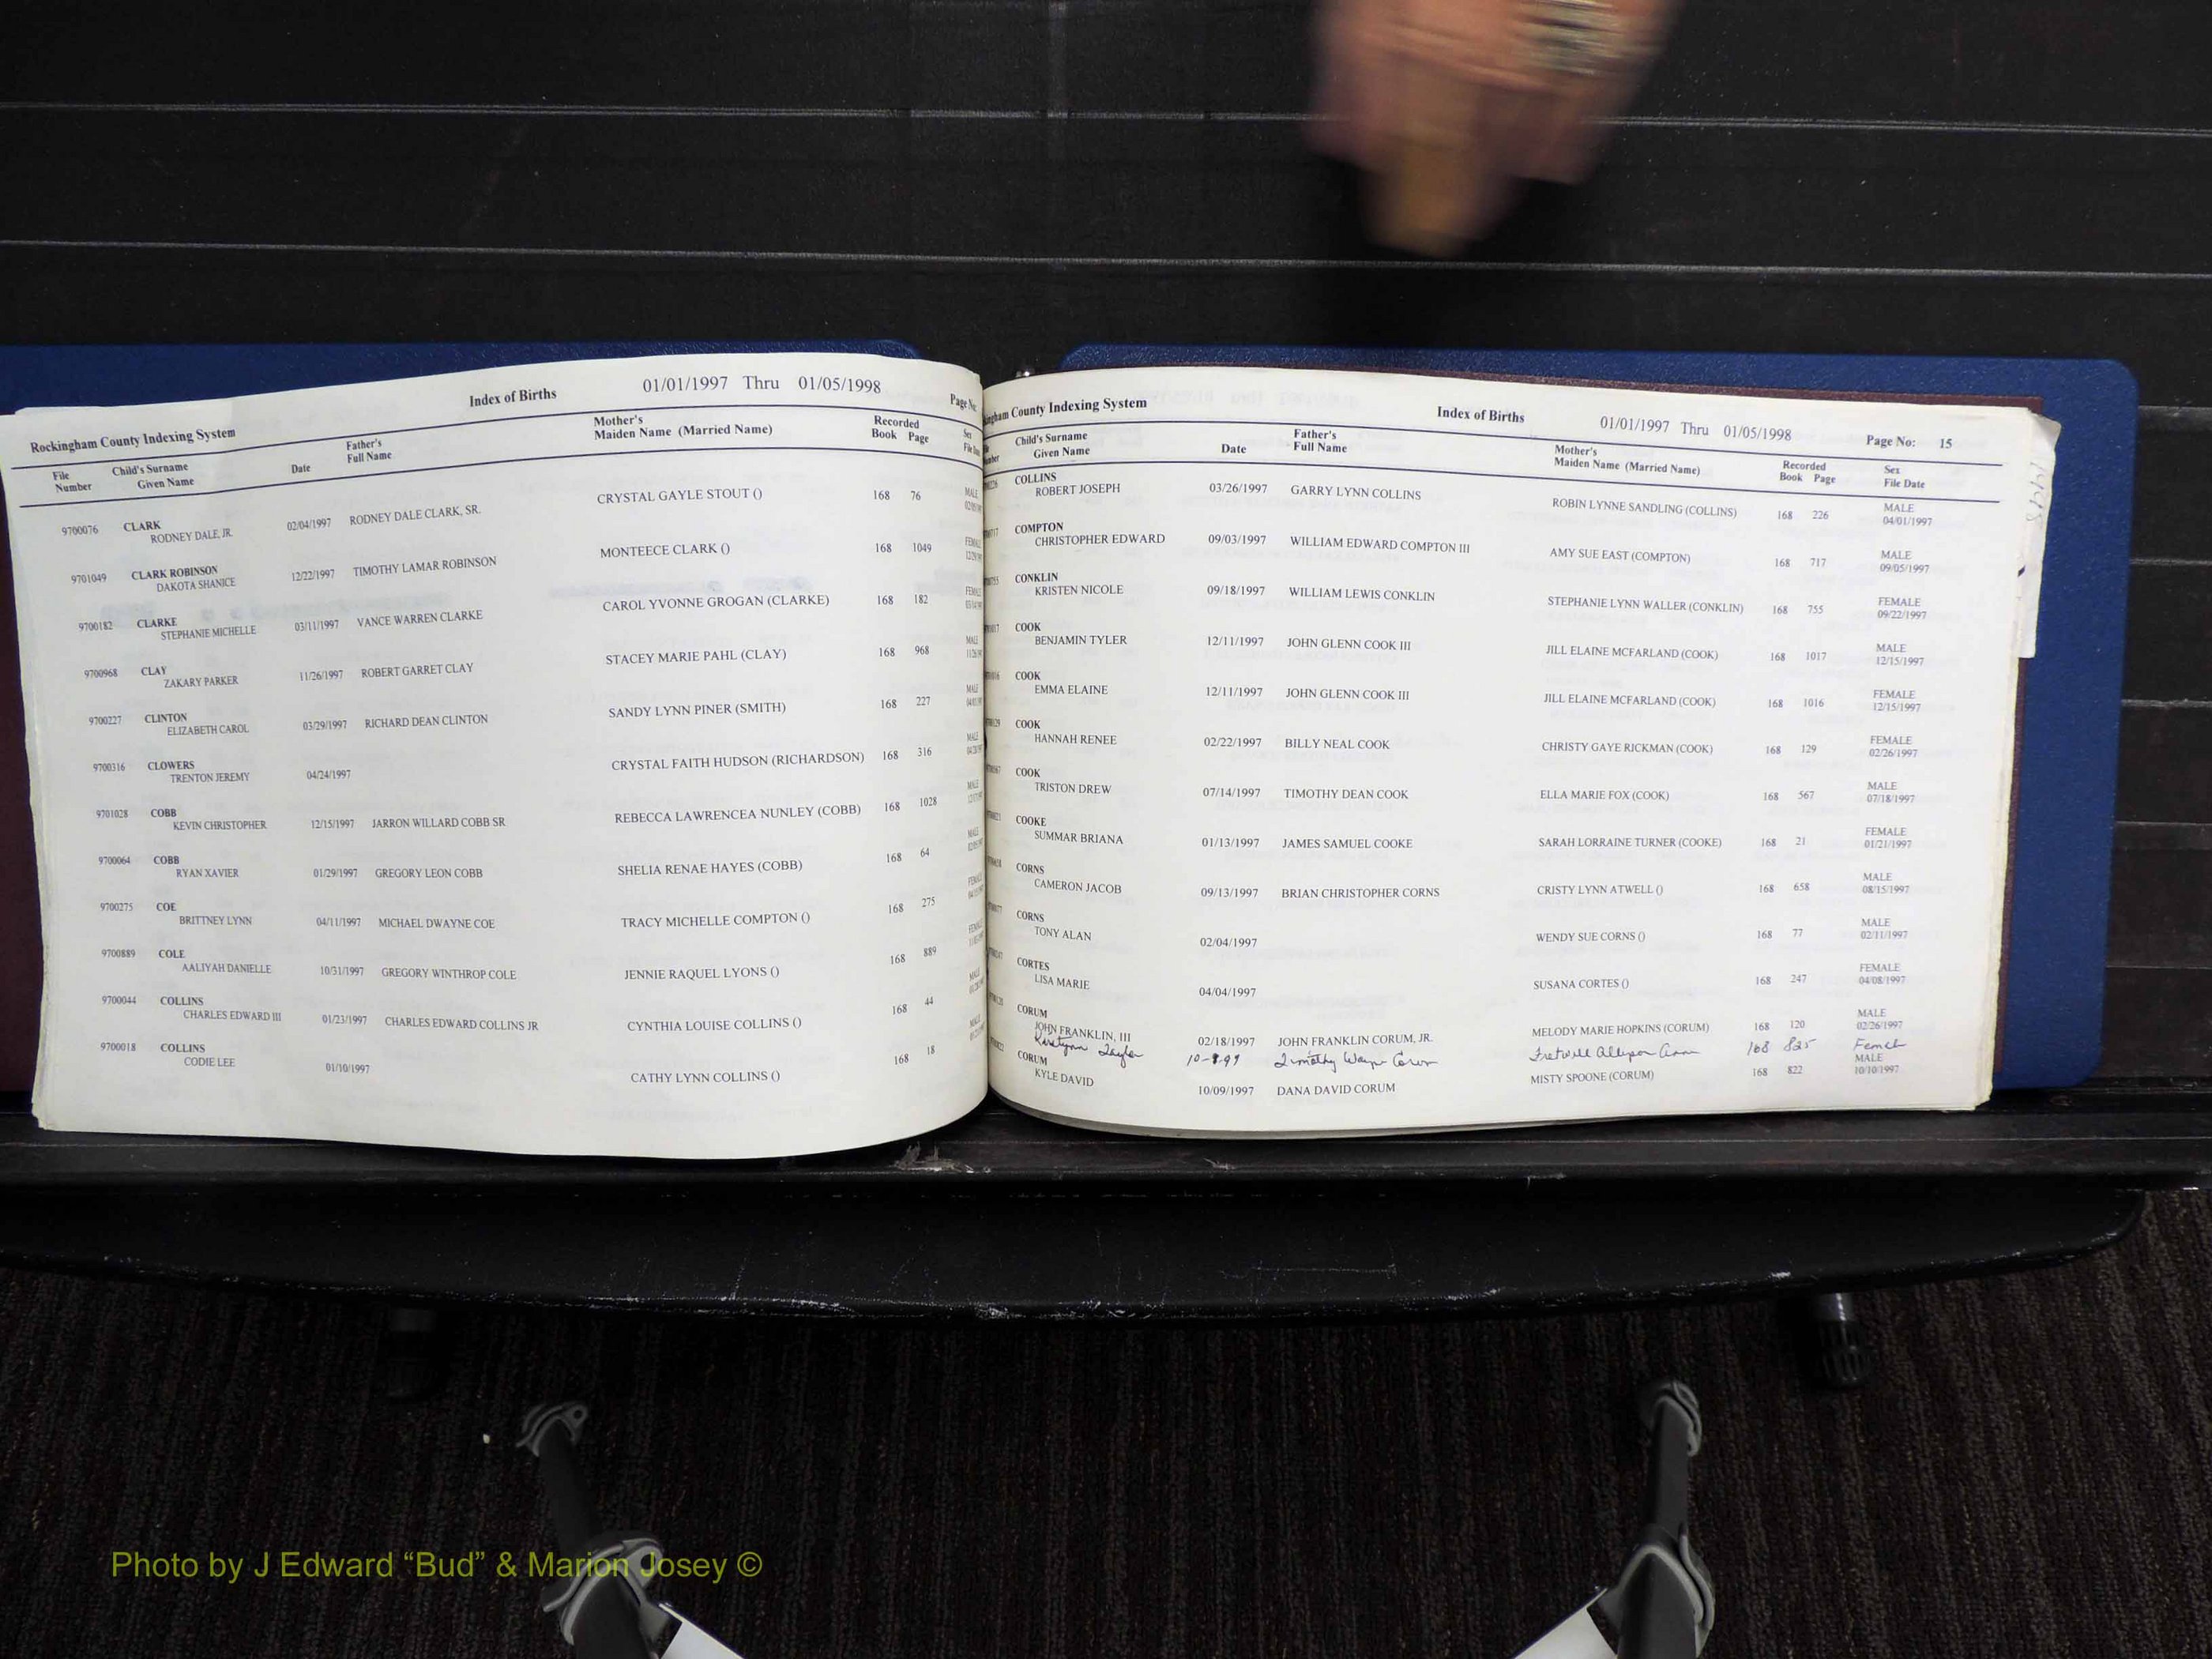 Rockingham County Indexing System Index of Births 01/01/1997 Thru 01/05/1998 Page No:
File Number Child's Surname Given Name Date Father's Full Name Mother's Maiden Name (Married Name) Recorded Book Page Sex File Date
9700076 CLARK 02/04/1997 RODNEY DALE CLARK, SR. CRYSTAL GAYLE STOUT () 168 76 MALE
RODNEY DALE, JR.
9701049 CLARK ROBINSON 12/22/1997 TIMOTHY LAMAR ROBINSON MONTEECE CLARK () 168 1049
DAKOTA SHANICE
9700182 CLARKE 03/11/1997 VANCE WARREN CLARKE CAROL YVONNE GROGAN (CLARKE) 168 182
STEPHANIE MICHELLE
9700968 CLAY 11/26/1997 ROBERT GARRET CLAY STACEY MARIE PAHL (CLAY) 168 968 MALE
ZAKARY PARKER
9700227 CLINTON 03/29/1997 RICHARD DEAN CLINTON SANDY LYNN PINER (SMITH) 168 227 MALE
ELIZABETH CAROL
9700316 CLOWERS 04/24/1997 CRYSTAL FAITH HUDSON (RICHARDSON) 168 316 MALE
TRENTON JEREMY
9701028 COBB 12/15/1997 JARRON WILLARD COBB SR REBECCA LAWRENCEA NUNLEY (COBB) 168 1028 MALE
KEVIN CHRISTOPHER
9700064 COBB 01/29/1997 GREGORY LEON COBB SHELIA RENAE HAYES (COBB) 168 64 MALE
RYAN XAVIER
9700275 COE 04/11/1997 MICHAEL DWAYNE COE TRACY MICHELLE COMPTON () 168 275
BRITTNEY LYNN
9700889 COLE 10/31/1997 GREGORY WINTHROP COLE JENNIE RAQUEL LYONS () 168 889
AALIYAH DANIELLE
9700044 COLLINS 01/23/1997 CHARLES EDWARD COLLINS JR CYNTHIA LOUISE COLLINS () 168 44 MALE
CHARLES EDWARD III
9700018 COLLINS 01/10/1997 CATHY LYNN COLLINS () 168 18 MALE
CODIE LEE
County Indexing System Index of Births 01/01/1997 Thru 01/05/1998 Page No: 15
Child's Surname Given Name Date Father's Full Name Mother's Maiden Name (Married Name) Recorded Book Page Sex File Date
COLLINS 03/26/1997 GARRY LYNN COLLINS ROBIN LYNNE SANDLING (COLLINS) 168 226 MALE
ROBERT JOSEPH 04/01/1997
COMPTON 09/03/1997 WILLIAM EDWARD COMPTON III AMY SUE EAST (COMPTON) 168 717 MALE
CHRISTOPHER EDWARD 09/05/1997
CONKLIN 09/18/1997 WILLIAM LEWIS CONKLIN STEPHANIE LYNN WALLER (CONKLIN) 168 755 FEMALE
KRISTEN NICOLE 09/22/1997
COOK 12/11/1997 JOHN GLENN COOK III JILL ELAINE MCFARLAND (COOK) 168 1017 MALE
BENJAMIN TYLER 12/15/1997
COOK 12/11/1997 JOHN GLENN COOK III JILL ELAINE MCFARLAND (COOK) 168 1016 FEMALE
EMMA ELAINE 12/15/1997
COOK 02/22/1997 BILLY NEAL COOK CHRISTY GAYE RICKMAN (COOK) 168 129 FEMALE
HANNAH RENEE 02/26/1997
COOK 07/14/1997 TIMOTHY DEAN COOK ELLA MARIE FOX (COOK) 168 567 MALE
TRISTON DREW 07/18/1997
COOKE 01/13/1997 JAMES SAMUEL COOKE SARAH LORRAINE TURNER (COOKE) 168 21 FEMALE
SUMMAR BRIANA 01/21/1997
CORNS 09/13/1997 BRIAN CHRISTOPHER CORNS CRISTY LYNN ATWELL () 168 658 MALE
CAMERON JACOB 08/15/1997
CORNS 02/04/1997 WENDY SUE CORNS () 168 77 MALE
TONY ALAN 02/11/1997
CORTES 04/04/1997 SUSANA CORTES () 168 247 FEMALE
LISA MARIE 04/08/1997
CORUM 02/18/1997 JOHN FRANKLIN CORUM, JR. MELODY MARIE HOPKINS (CORUM) 168 120 MALE
JOHN FRANKLIN, III 02/26/1997
Timothy Wayne Corum Fretwell Allyson Ann 168 825
CORUM 10/09/1997 DANA DAVID CORUM MISTY SPOONE (CORUM) 168 822 MALE
KYLE DAVID 10/10/1997
Photo by J Edward “Bud” & Marion Josey ©